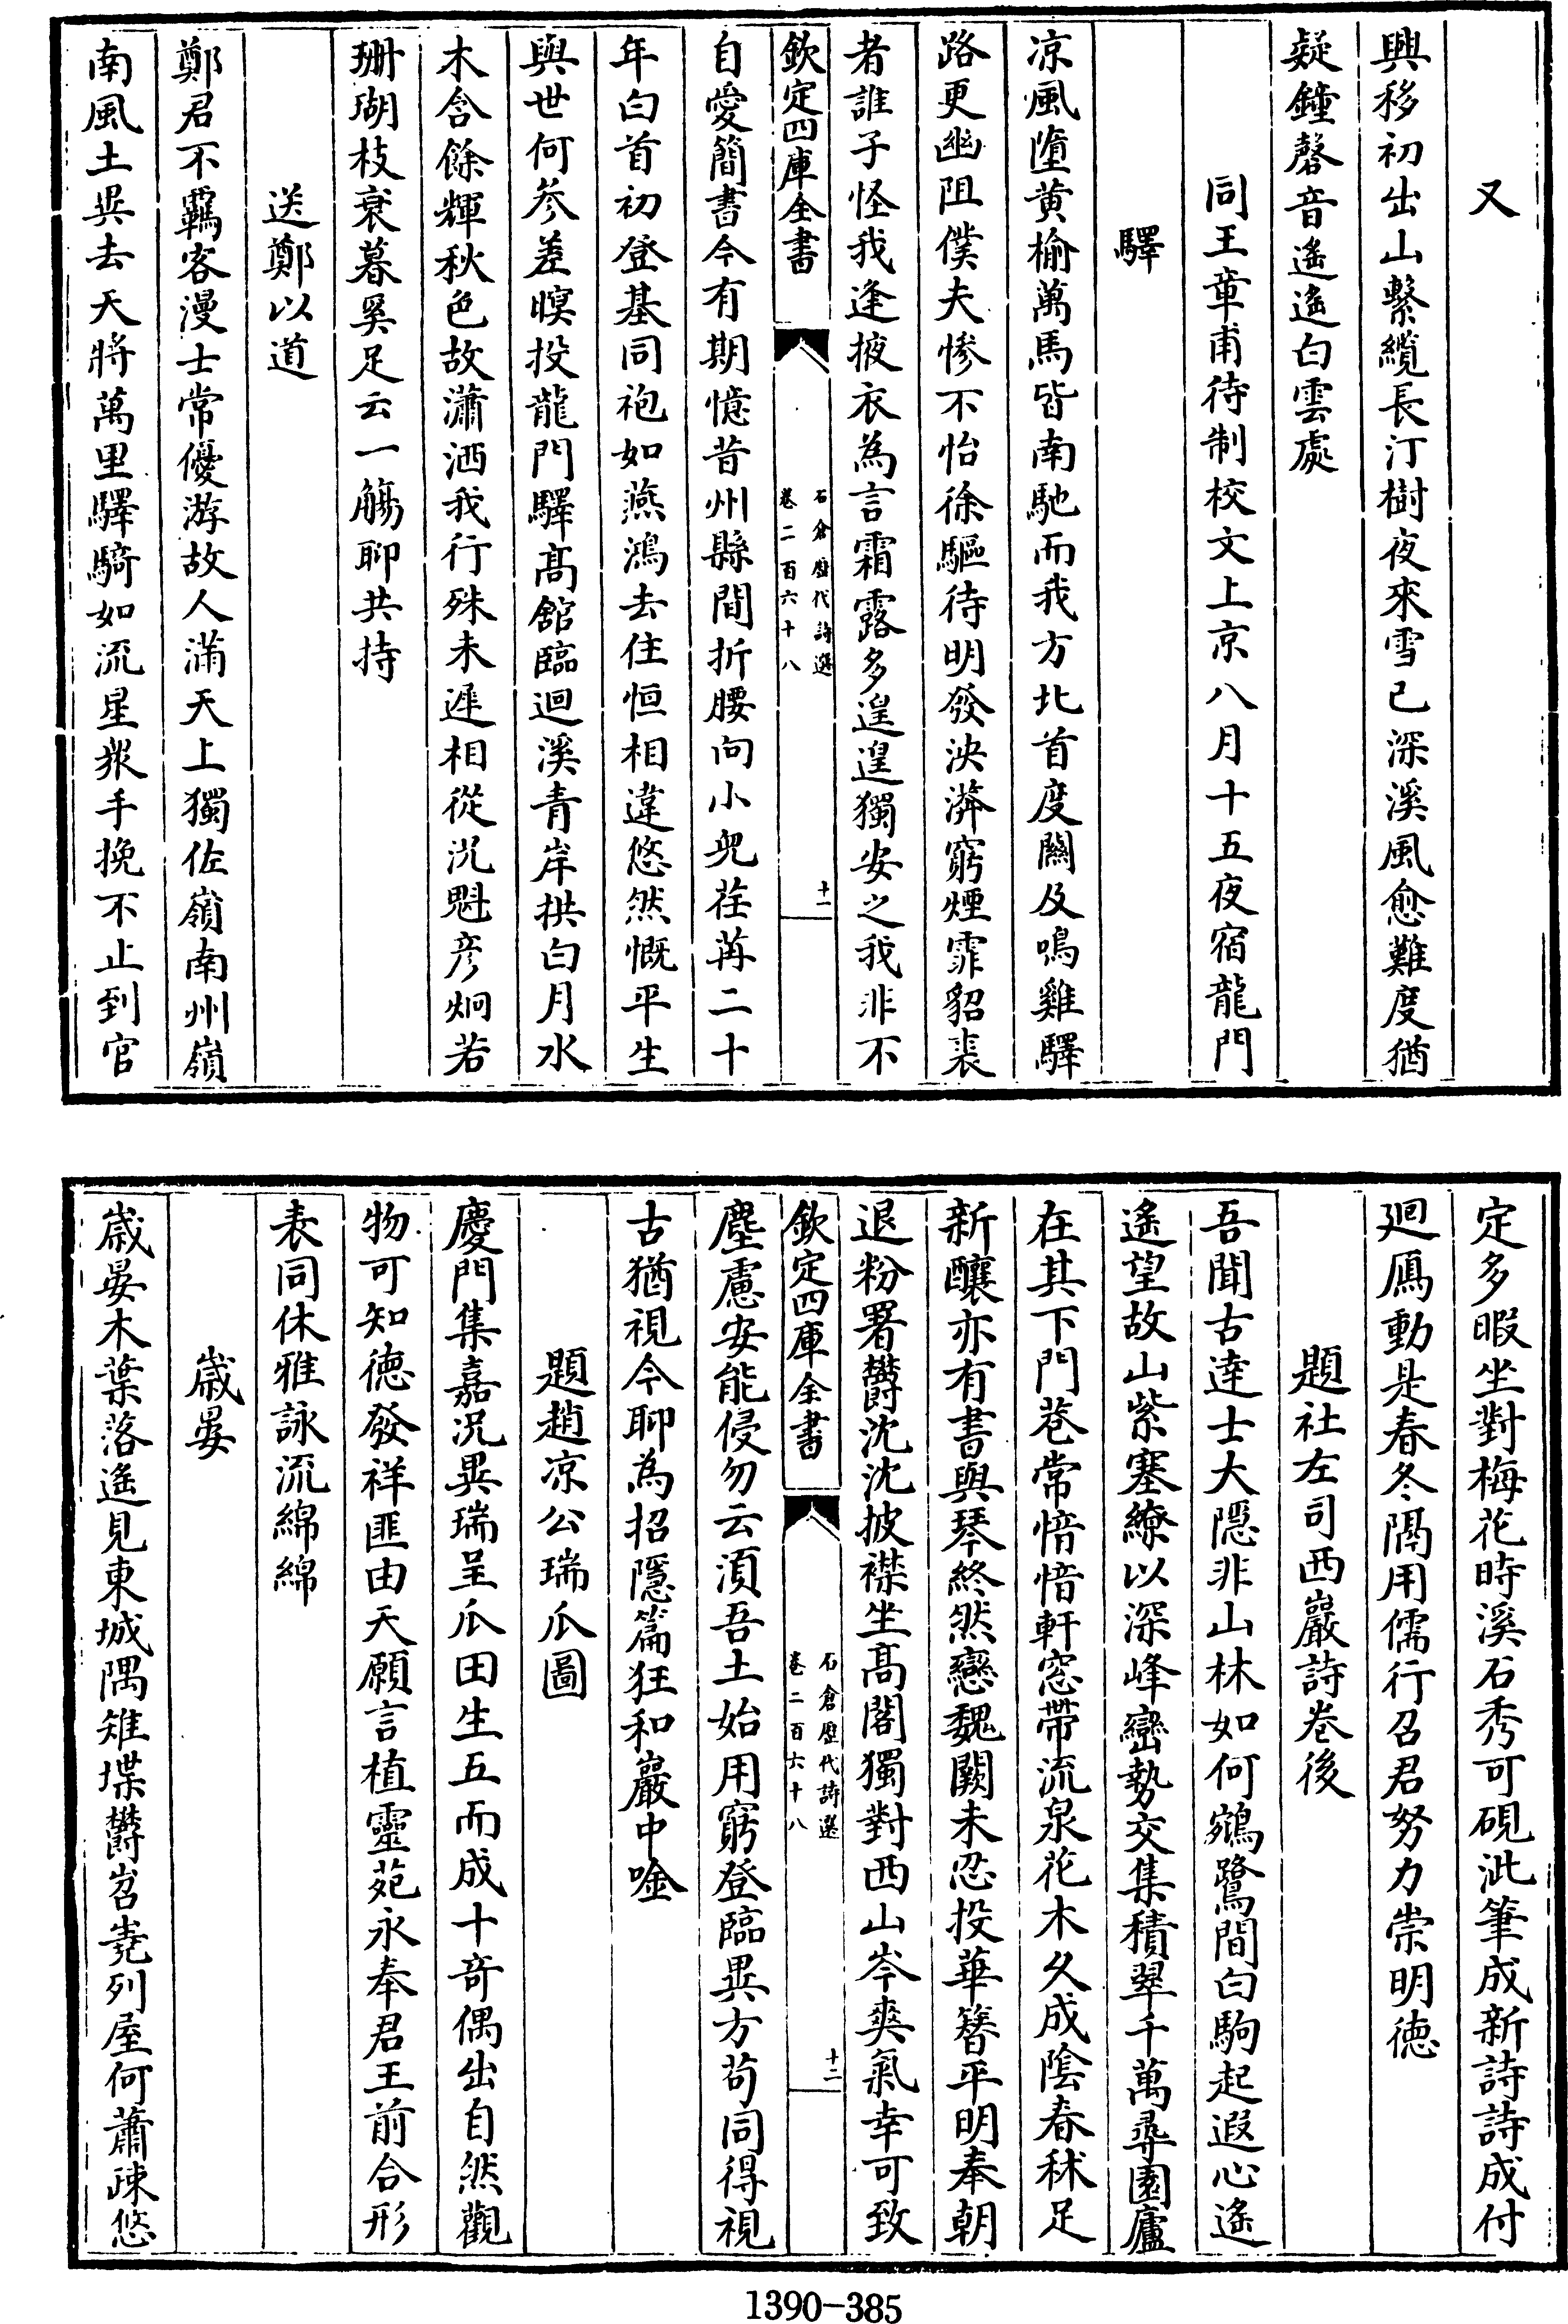 又
興移初出山繫纜長汀樹夜來雪已深溪風愈難度猶
疑鐘磬音遙遙白雲處
同王章甫待制校文上京八月十五夜宿龍門
驛
凉風墮黄榆萬馬皆南馳而我方北首度關及鳴雞驛
路更幽阻僕夫慘不怡徐驅待明發泱漭窮煙霏貂裘
者誰子怪我逢掖衣為言霜露多遑遑獨安之我非不
欽定四庫全書
石倉歷代詩選
卷二百六十八
十一
自愛簡書今有期憶昔州縣間折腰向小兒荏苒二十
年白首初登基同袍如燕鴻去住恒相違悠然慨平生
與世何參差暝投龍門驛髙舘臨迴溪青岸拱白月水
木含餘輝秋色故瀟洒我行殊未遲相從況魁彦炯若
珊瑚枝衰暮奚足云一觴聊共持
送鄭以道
鄭君不羈客漫士常優游故人滿天上獨佐嶺南州嶺
南風土異去天將萬里驛騎如流星衆手挽不止到官
定多暇坐對梅花時溪石秀可硯泚筆成新詩詩成付
廻鴈動是春冬隔用儒行召君努力崇明徳
題社左司西巖詩巻後
吾聞古逹士大隱非山林如何鵷鷺間白駒起遐心遙
遙望故山紫塞繚以深峰巒勢交集積翠千萬尋園廬
在其下門巷常愔愔軒窓帶流泉花木久成陰春秫足
新釀亦有書與琴終然戀魏闕未忍投華簪平明奉朝
退粉署欝沈沈披襟坐髙閣獨對西山岑爽氣幸可致
欽定四庫全書
石倉歷代詩選
卷二百六十八
十二
塵慮安能侵勿云湏吾土始用窮登臨異方苟同得視
古猶視今聊為招隱篇狂和巖中唫
題趙凉公瑞瓜圖
慶門集嘉況異瑞呈瓜田生五而成十竒偶出自然觀
物可知徳發祥匪由天願言植靈苑永奉君王前合形
表同休雅詠流綿綿
嵗晏
嵗晏木葉落遙見東城隅雉堞欝岧嶤列屋何蕭疎悠
1390-385